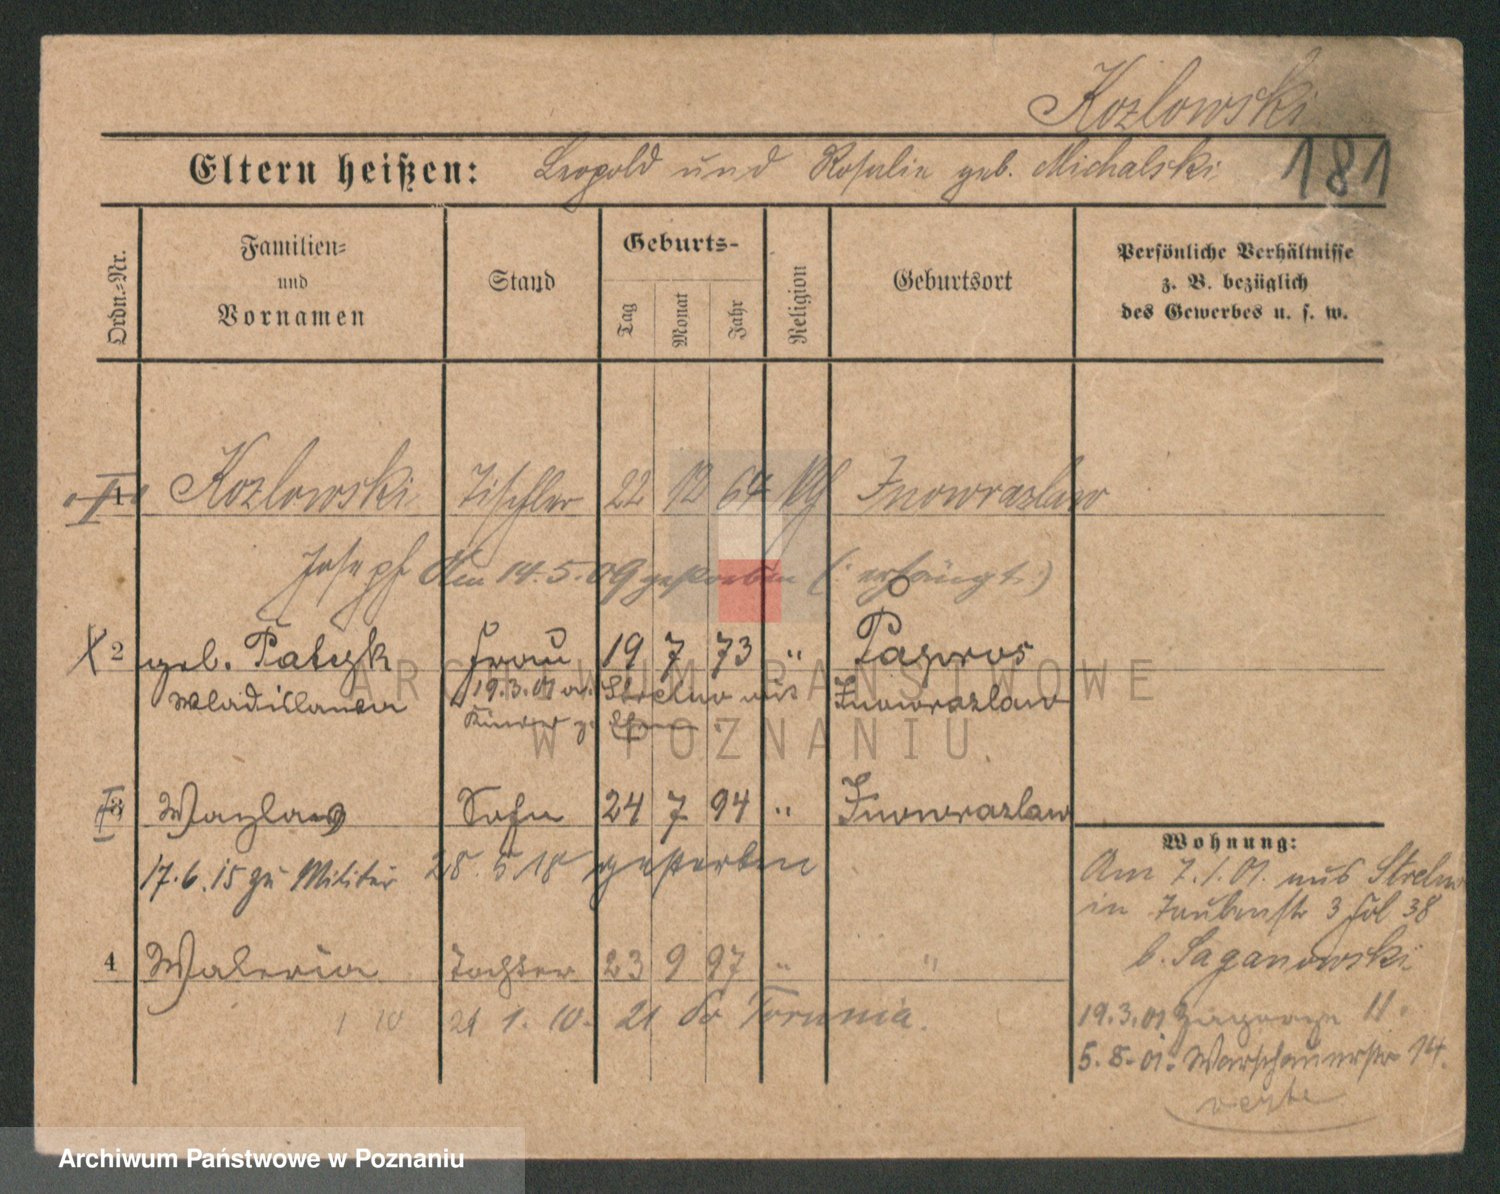 Kozlowski
Eltern heißen: Leopold und Rosalie geb. Michalski 181
Ordn.-Nr.
Familien-
und
Vornamen
Stand
Geburts-
Tag
Monat
Jahr
Religion
Geburtsort
Persönliche Verhältnisse
z. B. bezüglich
des Gewerbes u. s. w.
1 Kozlowski Tischler 22 12 64 kth Inowrazlaw
Joseph Am 14.5.09 gestorben (: erhängt :)
2 geb. Patzyk Frau 19 7 73 " Papros
Wladislawa 19.3.01 a. Strelno mit Inowrazlaw
Kinder z.
3 Wazlaw Sohn 24 7 94 " Inowrazlaw
17.6.15 zu Militär 28.5.18 gestorben
4 Waleria Tochter 23 9 97 " "
1 10 21 1. 10. 21 do Torunia.
Wohnung:
Am 7.1.01. aus Strelno
in Taubenstr 3 Fol 38
b. Saganowski
19.3.01 11.
5.8.01. Warschauerstr 14.
verte
ARCHIWUM PAŃSTWOWE
W POZNANIU
Archiwum Państwowe w Poznaniu